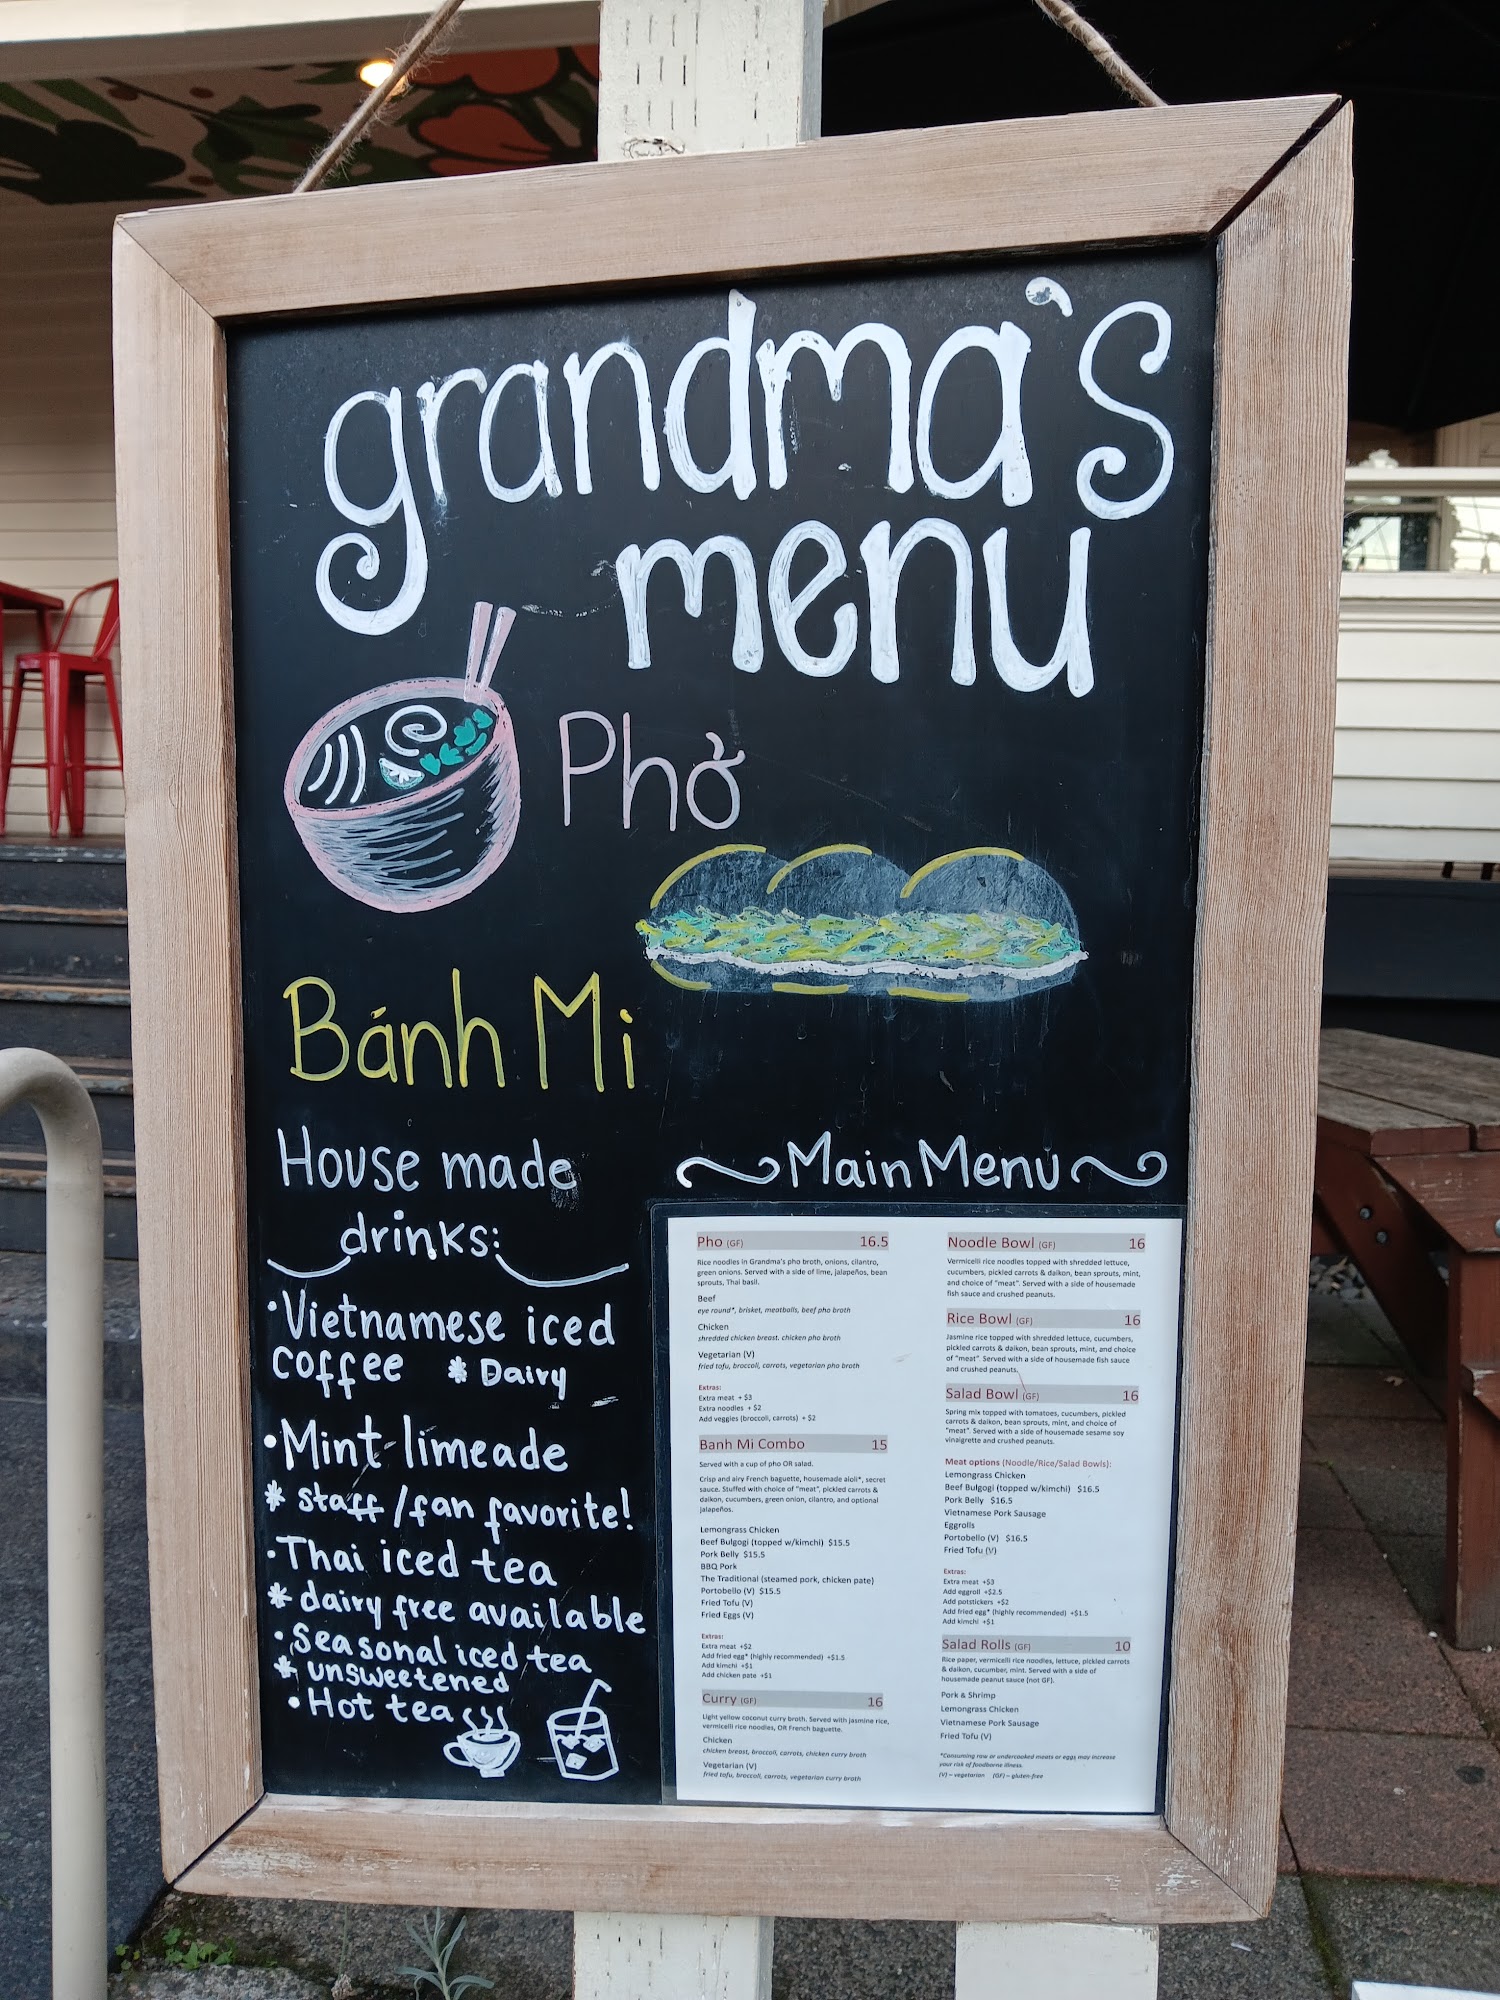 grandma's
menu
Phở
Bánh Mi
House made
drinks:
•Vietnamese iced
coffee * Dairy
•Mint limeade
* staff/fan favorite!
•Thai iced tea
* dairy free available
•Seasonal iced tea
* unsweetened
•Hot tea
Main Menu
Pho (GF) 16.5
Rice noodles in Grandma's pho broth, onions, cilantro,
green onions. Served with a side of lime, jalapeños, bean
sprouts, Thai basil.
Beef
eye round*, brisket, meatballs, beef pho broth
Chicken
shredded chicken breast. chicken pho broth
Vegetarian (V)
fried tofu, broccoli, carrots, vegetarian pho broth
Extras:
Extra meat + $3
Extra noodles + $2
Add veggies (broccoli, carrots) + $2
Banh Mi Combo 15
Served with a cup of pho OR salad.
Crisp and airy French baguette, housemade aioli*, secret
sauce. Stuffed with choice of "meat", pickled carrots &
daikon, cucumbers, green onion, cilantro, and optional
jalapeños.
Lemongrass Chicken
Beef Bulgogi (topped w/kimchi) $15.5
Pork Belly $15.5
BBQ Pork
The Traditional (steamed pork, chicken pate)
Portobello (V) $15.5
Fried Tofu (V)
Fried Eggs (V)
Extras:
Extra meat +$2
Add fried egg* (highly recommended) +$1.5
Add kimchi +$1
Add chicken pate +$1
Curry (GF) 16
Light yellow coconut curry broth. Served with jasmine rice,
vermicelli rice noodles, OR French baguette.
Chicken
chicken breast, broccoli, carrots, chicken curry broth
Vegetarian (V)
fried tofu, broccoli, carrots, vegetarian curry broth
Noodle Bowl (GF) 16
Vermicelli rice noodles topped with shredded lettuce,
cucumbers, pickled carrots & daikon, bean sprouts, mint,
and choice of "meat". Served with a side of housemade
fish sauce and crushed peanuts.
Rice Bowl (GF) 16
Jasmine rice topped with shredded lettuce, cucumbers,
pickled carrots & daikon, bean sprouts, mint, and choice
of "meat". Served with a side of housemade fish sauce
and crushed peanuts.
Salad Bowl (GF) 16
Spring mix topped with tomatoes, cucumbers, pickled
carrots & daikon, bean sprouts, mint, and choice of
"meat". Served with a side of housemade sesame soy
vinaigrette and crushed peanuts.
Meat options (Noodle/Rice/Salad Bowls):
Lemongrass Chicken
Beef Bulgogi (topped w/kimchi) $16.5
Pork Belly $16.5
Vietnamese Pork Sausage
Eggrolls
Portobello (V) $16.5
Fried Tofu (V)
Extras:
Extra meat +$3
Add eggroll +$2.5
Add potstickers +$2
Add fried egg* (highly recommended) +$1.5
Add kimchi +$1
Salad Rolls (GF) 10
Rice paper, vermicelli rice noodles, lettuce, pickled carrots
& daikon, cucumber, mint. Served with a side of
housemade peanut sauce (not GF).
Pork & Shrimp
Lemongrass Chicken
Vietnamese Pork Sausage
Fried Tofu (V)
*Consuming raw or undercooked meats or eggs may increase
your risk of foodborne illness.
(V) – vegetarian (GF) – gluten-free